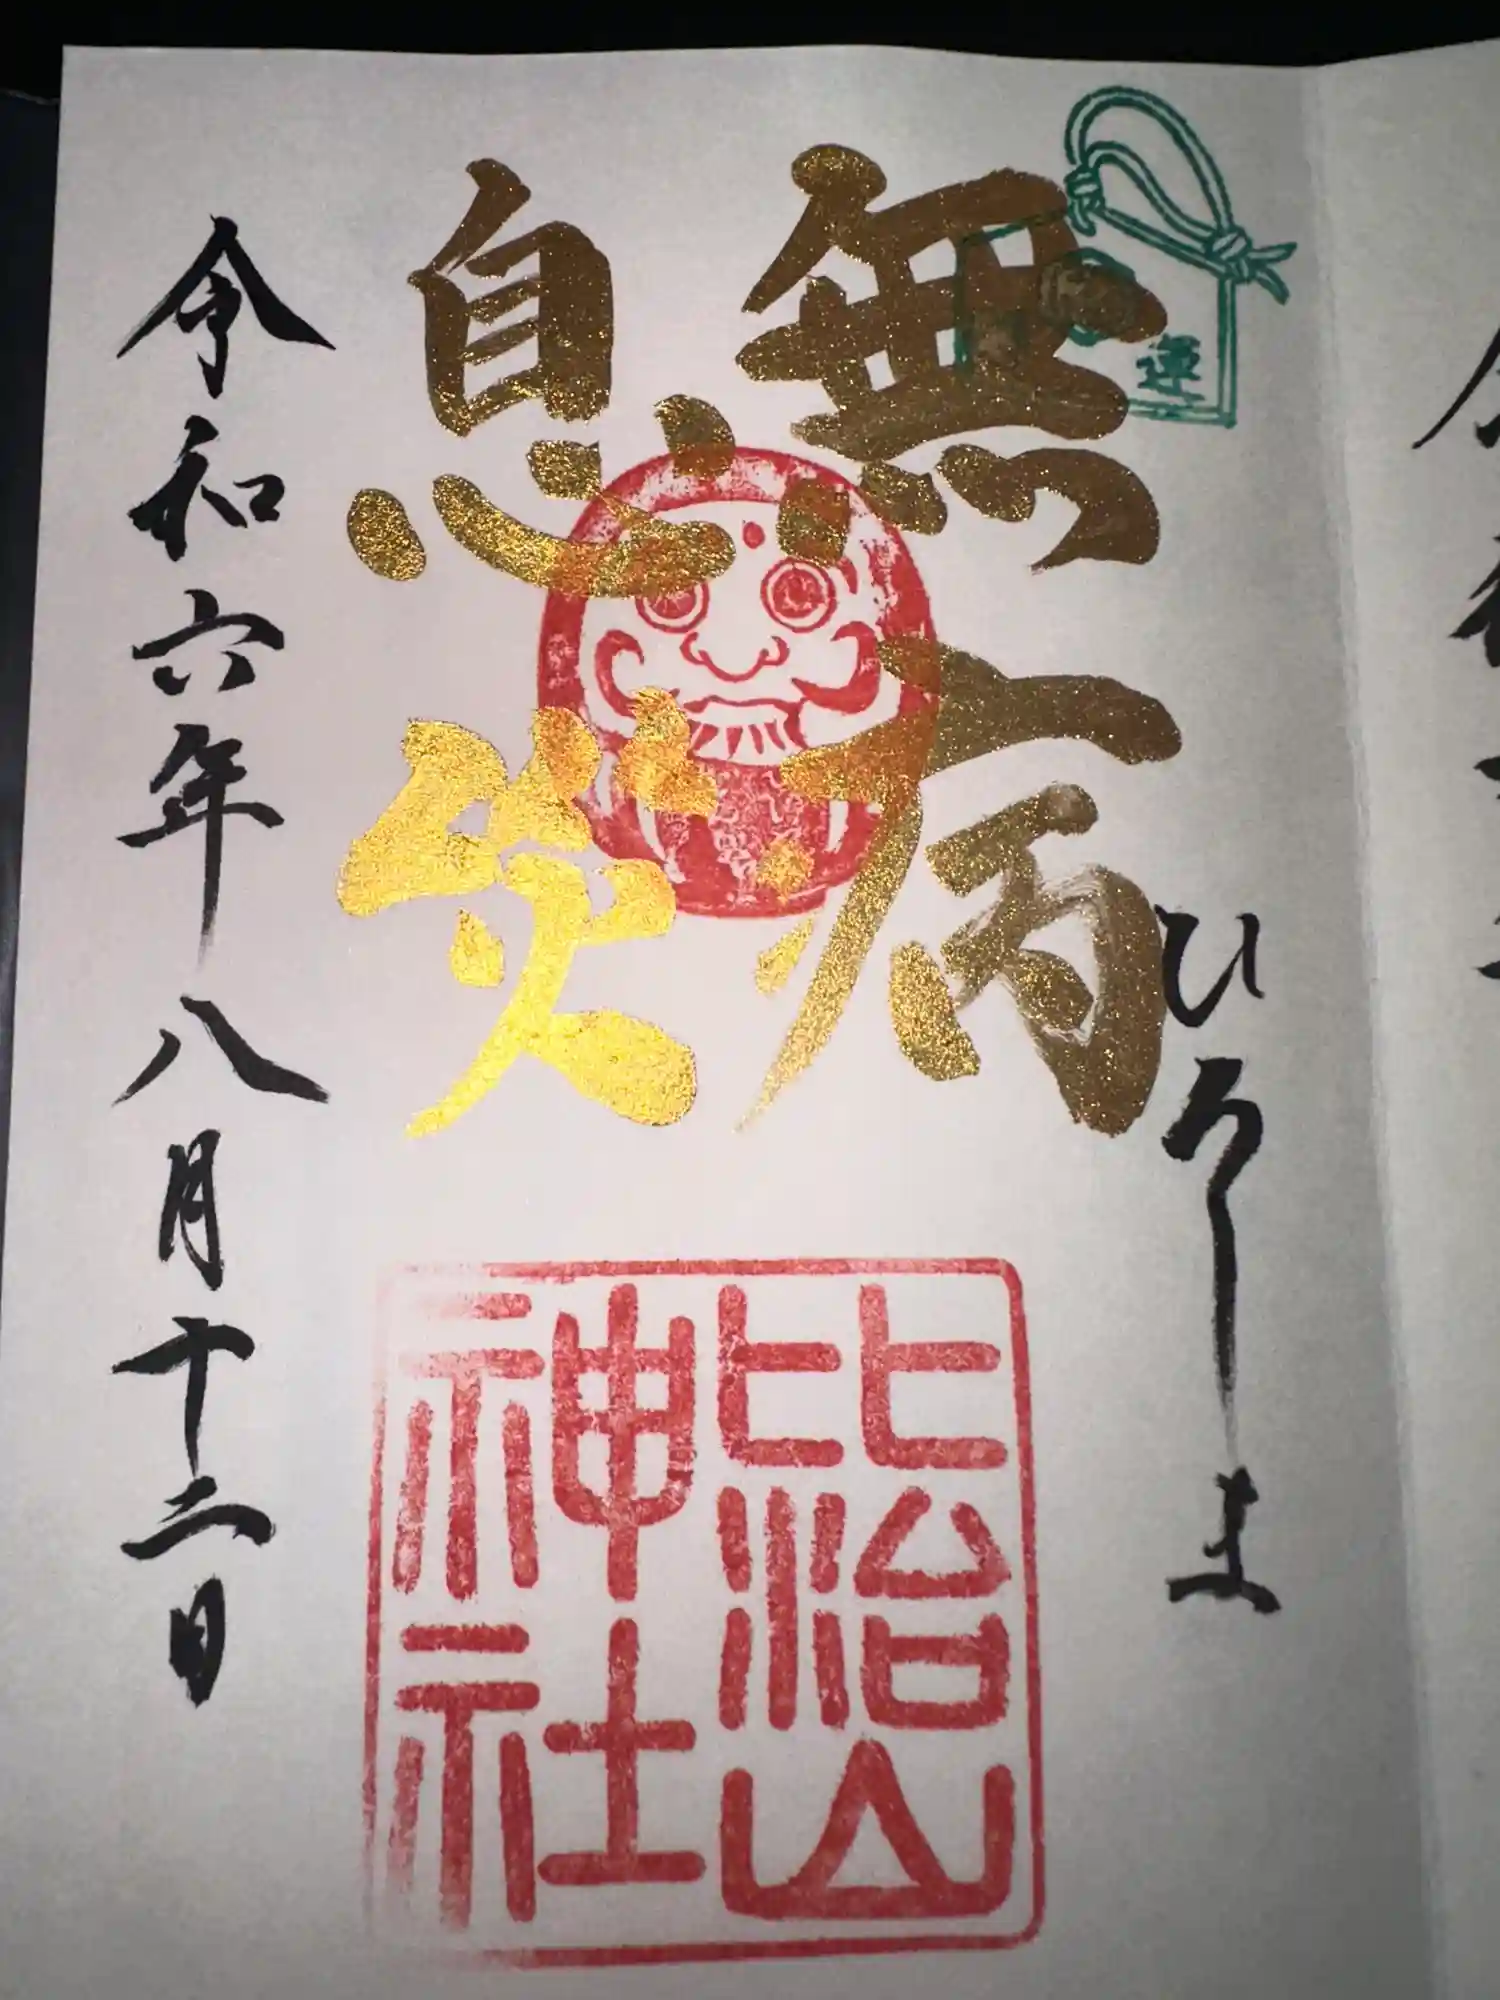 ひろしま
運
無病
息災
比治山
神社
令和六年八月十二日